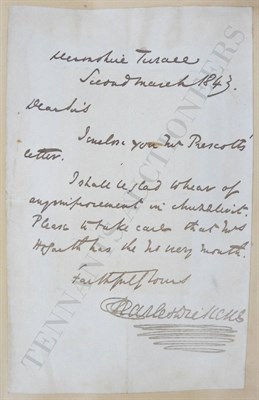 Devonshire Terrace
Second March 1843.
Dear Sirs
I inclose you Mr Prescott's
letter.
I shall be glad to hear of
any improvement in Chuzzlewit.
Please to take care that Mrs
Hogarth has the No every month.
Faithfully Yours
Charles Dickens
TENNANTS AUCTIONEERS